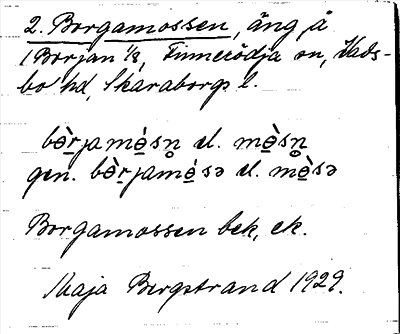 2. Borgamossen, äng å
1 Borjan 1/8, Finnerödja sn, Vads-
bo hd, Skaraborgs l.
bɵ̀rjamɵ́sn̥ el. mɵ̀sn̥
gen. bɵ̀rjamɵ́sə el. mɵ̀sə
Borgamossen bek, ek.
Maja Bergstrand 1929.